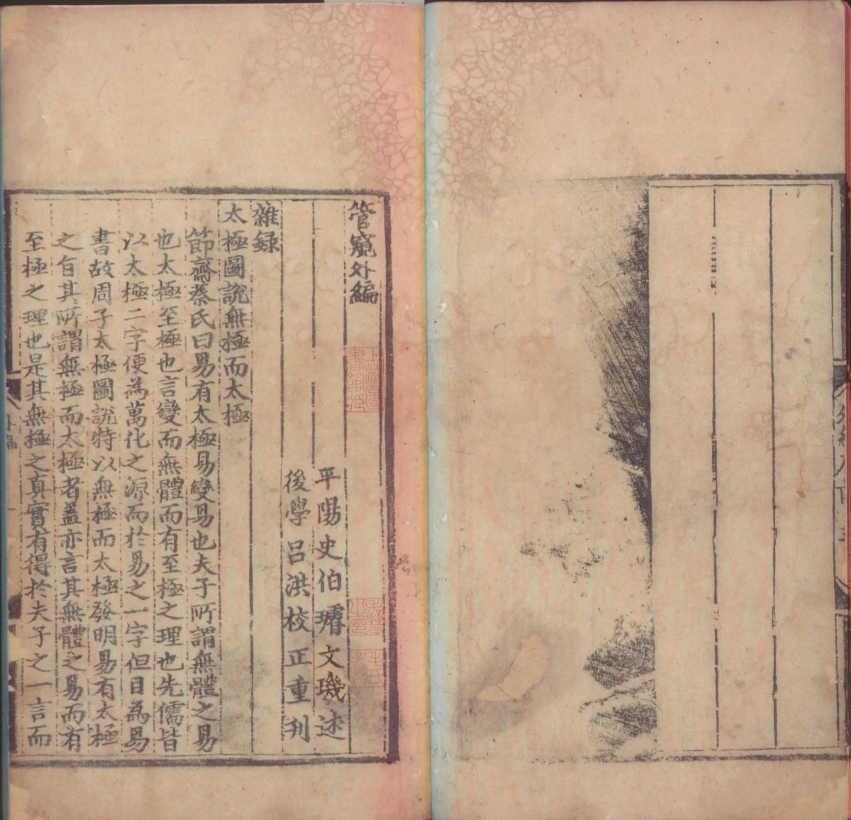 管窺外編
平陽史伯璿文璣述
後學呂洪校正重刊
雜録
太極圖説無極而太極
節齋蔡氏曰易有太極易變易也夫子所謂無體之易
也太極至極也言變而無體而有至極之理也先儒皆
以太極二字便為萬化之源而於易之一字但目為易
書故周子太極圖説特以無極而太極發明易有太極
之旨其所謂無極而太極者蓋亦言其無體之易而有
至極之理也是其無極之真實有得於夫子之一言而
外編